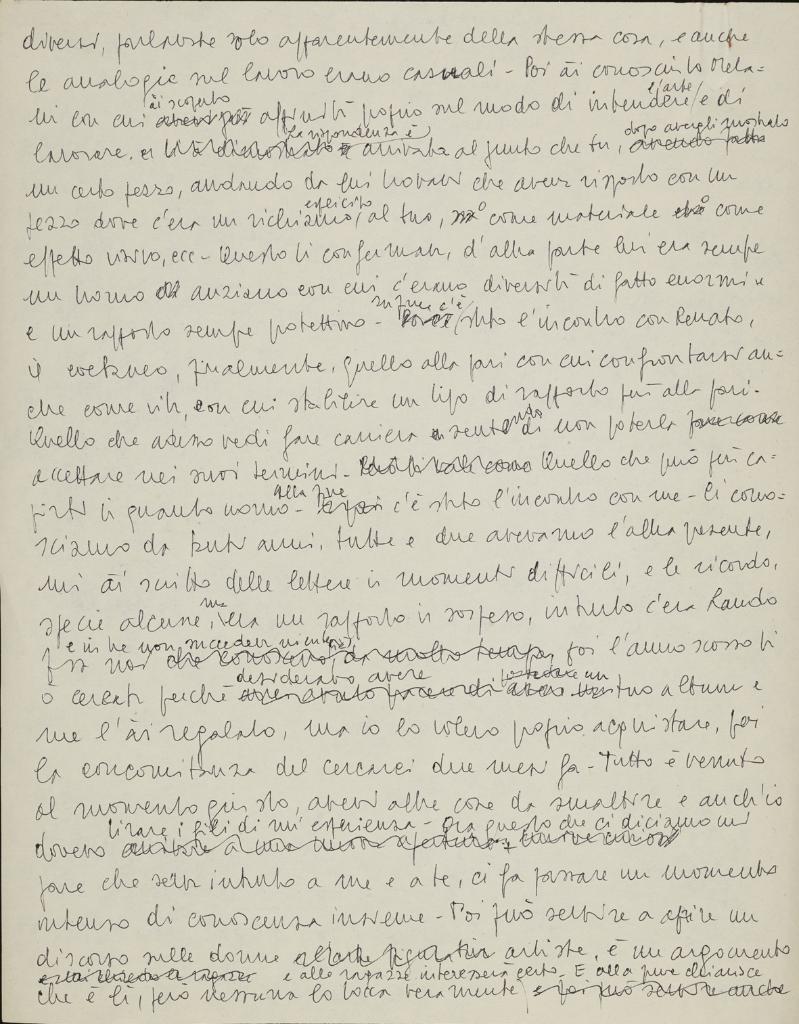 diversi, parlavate solo apparentemente della stessa cosa, e anche
le analogie sul lavoro erano casuali - Poi ài conosciuto Mela=
ài scoperto l'arte/
ni con cui affinità proprio sul modo di intendere e di
La rispondenza è dopo avergli mostrato
lavorare. arrivata al punto che tu,
un certo pezzo, andando da lui trovavi che aveva risposto con un
esplicito
pezzo dove c'era un richiamo al tuo, o come materiale o come
effetto visivo, ecc - Questo ti confermava, d'altra parte lui era sempre
un uomo anziano con cui c'erano diversità di fatto enormi
infine c'è
e un rapporto sempre protettivo - stato l'incontro con Renato,
il coetaneo, finalmente, quello alla pari con cui confrontarsi an=
che come vita, con cui stabilire un tipo di rapporto più alla pari.
ndo
Quello che adesso vedi fare carriera sente di non poterla
accettare nei suoi termini - Quello che può più ca=
Alla fine
pirti in quanto uomo - c'è stato l'incontro con me - ci cono=
sciamo da tanti anni, tutte e due avevamo l'altra presente,
mi ài scritto delle lettere in momenti difficili, e le ricordo,
ma
specie alcune, era un rapporto in sospeso, intanto c'era
e in te non succedeva niente
fra noi poi l'anno scorso ti
desideravo avere un
ò cercata perché tuo album e
me l'ài regalato, ma io lo volevo proprio acquistare, poi
la concomitanza del cercarci due mesi fa - Tutto è venuto
al momento giusto, avevi altre cose da smaltire e anch'io
tirare i fili di un'esperienza - Ora questo che ci diciamo mi
dovevo
pare che serva intanto a me e a te, ci fa passare un momento
intenso di conoscenza insieme - Poi può servire a aprire un
discorso sulle donne artiste, è un argomento
e alle ragazze interesserà certo. E alla fine
che è lì, però nessuna lo tocca veramente